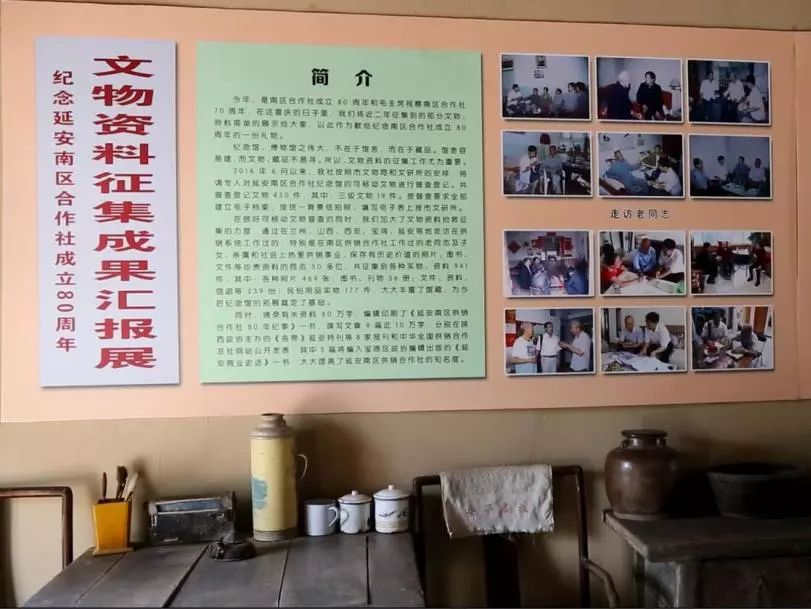 文物资料征集成果汇报展
纪念延安南区合作社成立80周年
简 介
今年,是南区合作社成立 80 周年和毛主席视察南区合作社
70 周年,在这喜庆的日子里,我们将近二年征集到的部分文物、
资料简单的展示给大家,以此作为献给纪念南区合作社成立 80
周年的一份礼物。
纪念馆、博物馆之伟大,不在于馆舍,而在于藏品。馆舍容
易建,而文物、藏品不易寻。所以,文物资料的征集工作尤为重要。
2014 年 6 月以来,我社按照市文物局和文研所的安排,抽
调专人对延安南区合作社纪念馆的可移动文物进行普查登记。共
普查登记文物 450 件,其中:三级文物 19 件。按普查要求全部
建立电子档案,按统一背景纸拍照,填写电子表上报市文研所。
在做好可移动文物普查的同时,我们加大了文物资料抢救征
集的力度,通过在兰州、山西、西安、宝鸡、延安等地走访在供
销系统工作过的,特别是在南区供销合作社工作过的老同志及子
女、亲属和社会上热爱供销事业,保存有历史价值的照片、图书、
文件等珍贵资料的同志 50 多位,共征集到各种实物、资料 941
件,其中:各种照片 469 张;图书、刊物 56 册;文件、资料、
信函等 239 份;民俗用品实物 177 件,大大丰富了馆藏,为今
后纪念馆的拓展奠定了基础。
同时,摘录有关资料 80 万字,编辑印刷了《延安南区供销
合作社 80 年纪事》一书,撰写文章 9 篇近 10 万字,分别在陕
西政协主办的《各界》延安特刊等 8 家报刊和中华全国供销合作
总社网站公开发表,其中 3 篇将编入宝塔区政协编辑出版的《延
安商业史话》一书,大大提高了延安南区供销合作社的知名度。
走访老同志